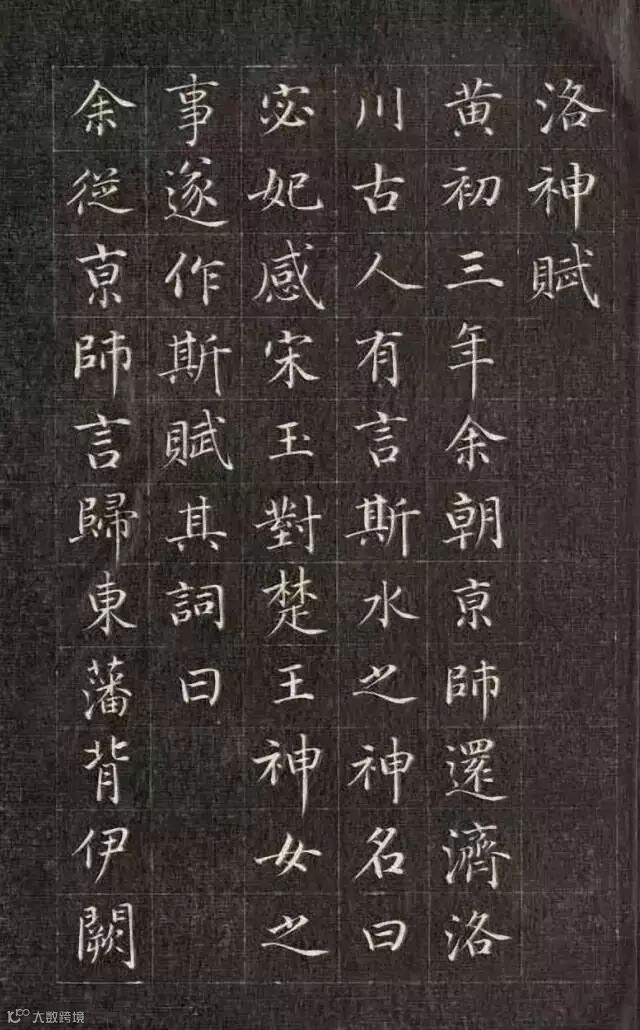 洛神賦
黄初三年余朝京師還濟洛
川古人有言斯水之神名曰
宓妃感宋玉對楚王神女之
事遂作斯賦其詞曰
余從京師言歸東藩背伊闕
大数跨境